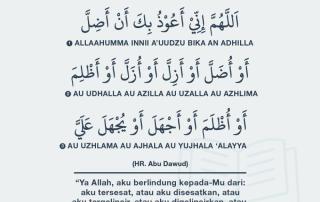 اَللَّهُمَّ إِنِّيْ أَعُوْذُ بِكَ أَنْ أَضِلَّ
1 ALLAAHUMMA INNII A'UUDZU BIKA AN ADHILLA
أَوْ أُضَلَّ أَوْ أَزِلَّ أَوْ أُزَلَّ أَوْ أَظْلِمَ
2 AU UDHALLA AU AZILLA AU UZALLA AU AZHLIMA
أَوْ أُظْلَمَ أَوْ أَجْهَلَ أَوْ يُجْهَلَ عَلَيَّ
3 AU UZHLAMA AU AJHALA AU YUJHALA 'ALAYYA
(HR. Abu Dawud)
"Ya Allah, aku berlindung kepada-Mu dari:
aku tersesat, atau aku disesatkan, atau
aku tergelincir, atau aku digelincirkan, atau